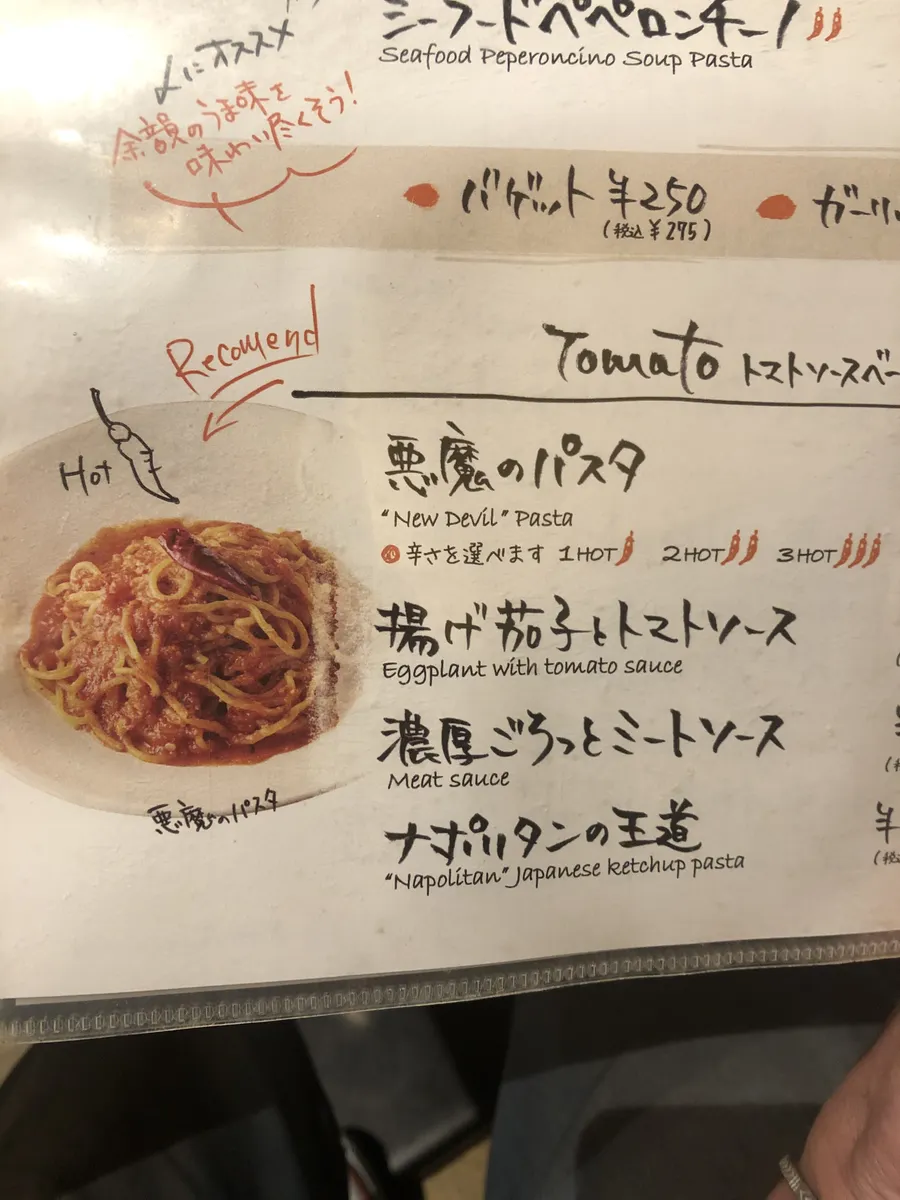 シーフードペペロンチーノ
Seafood Peperoncino Soup Pasta
にオススメ
余韻のうま味を
味わい尽くそう!
バゲット ¥250
(税込¥275)
ガーリ
Recomend
Tomato トマトソースベー
Hot
悪魔のパスタ
"New Devil" Pasta
辛さを選べます 1HOT 2HOT 3HOT
揚げ茄子とトマトソース
Eggplant with tomato sauce
濃厚ごろっとミートソース
Meat sauce
悪魔のパスタ
ナポリタンの王道
¥
"Napolitan" Japanese ketchup pasta
(税